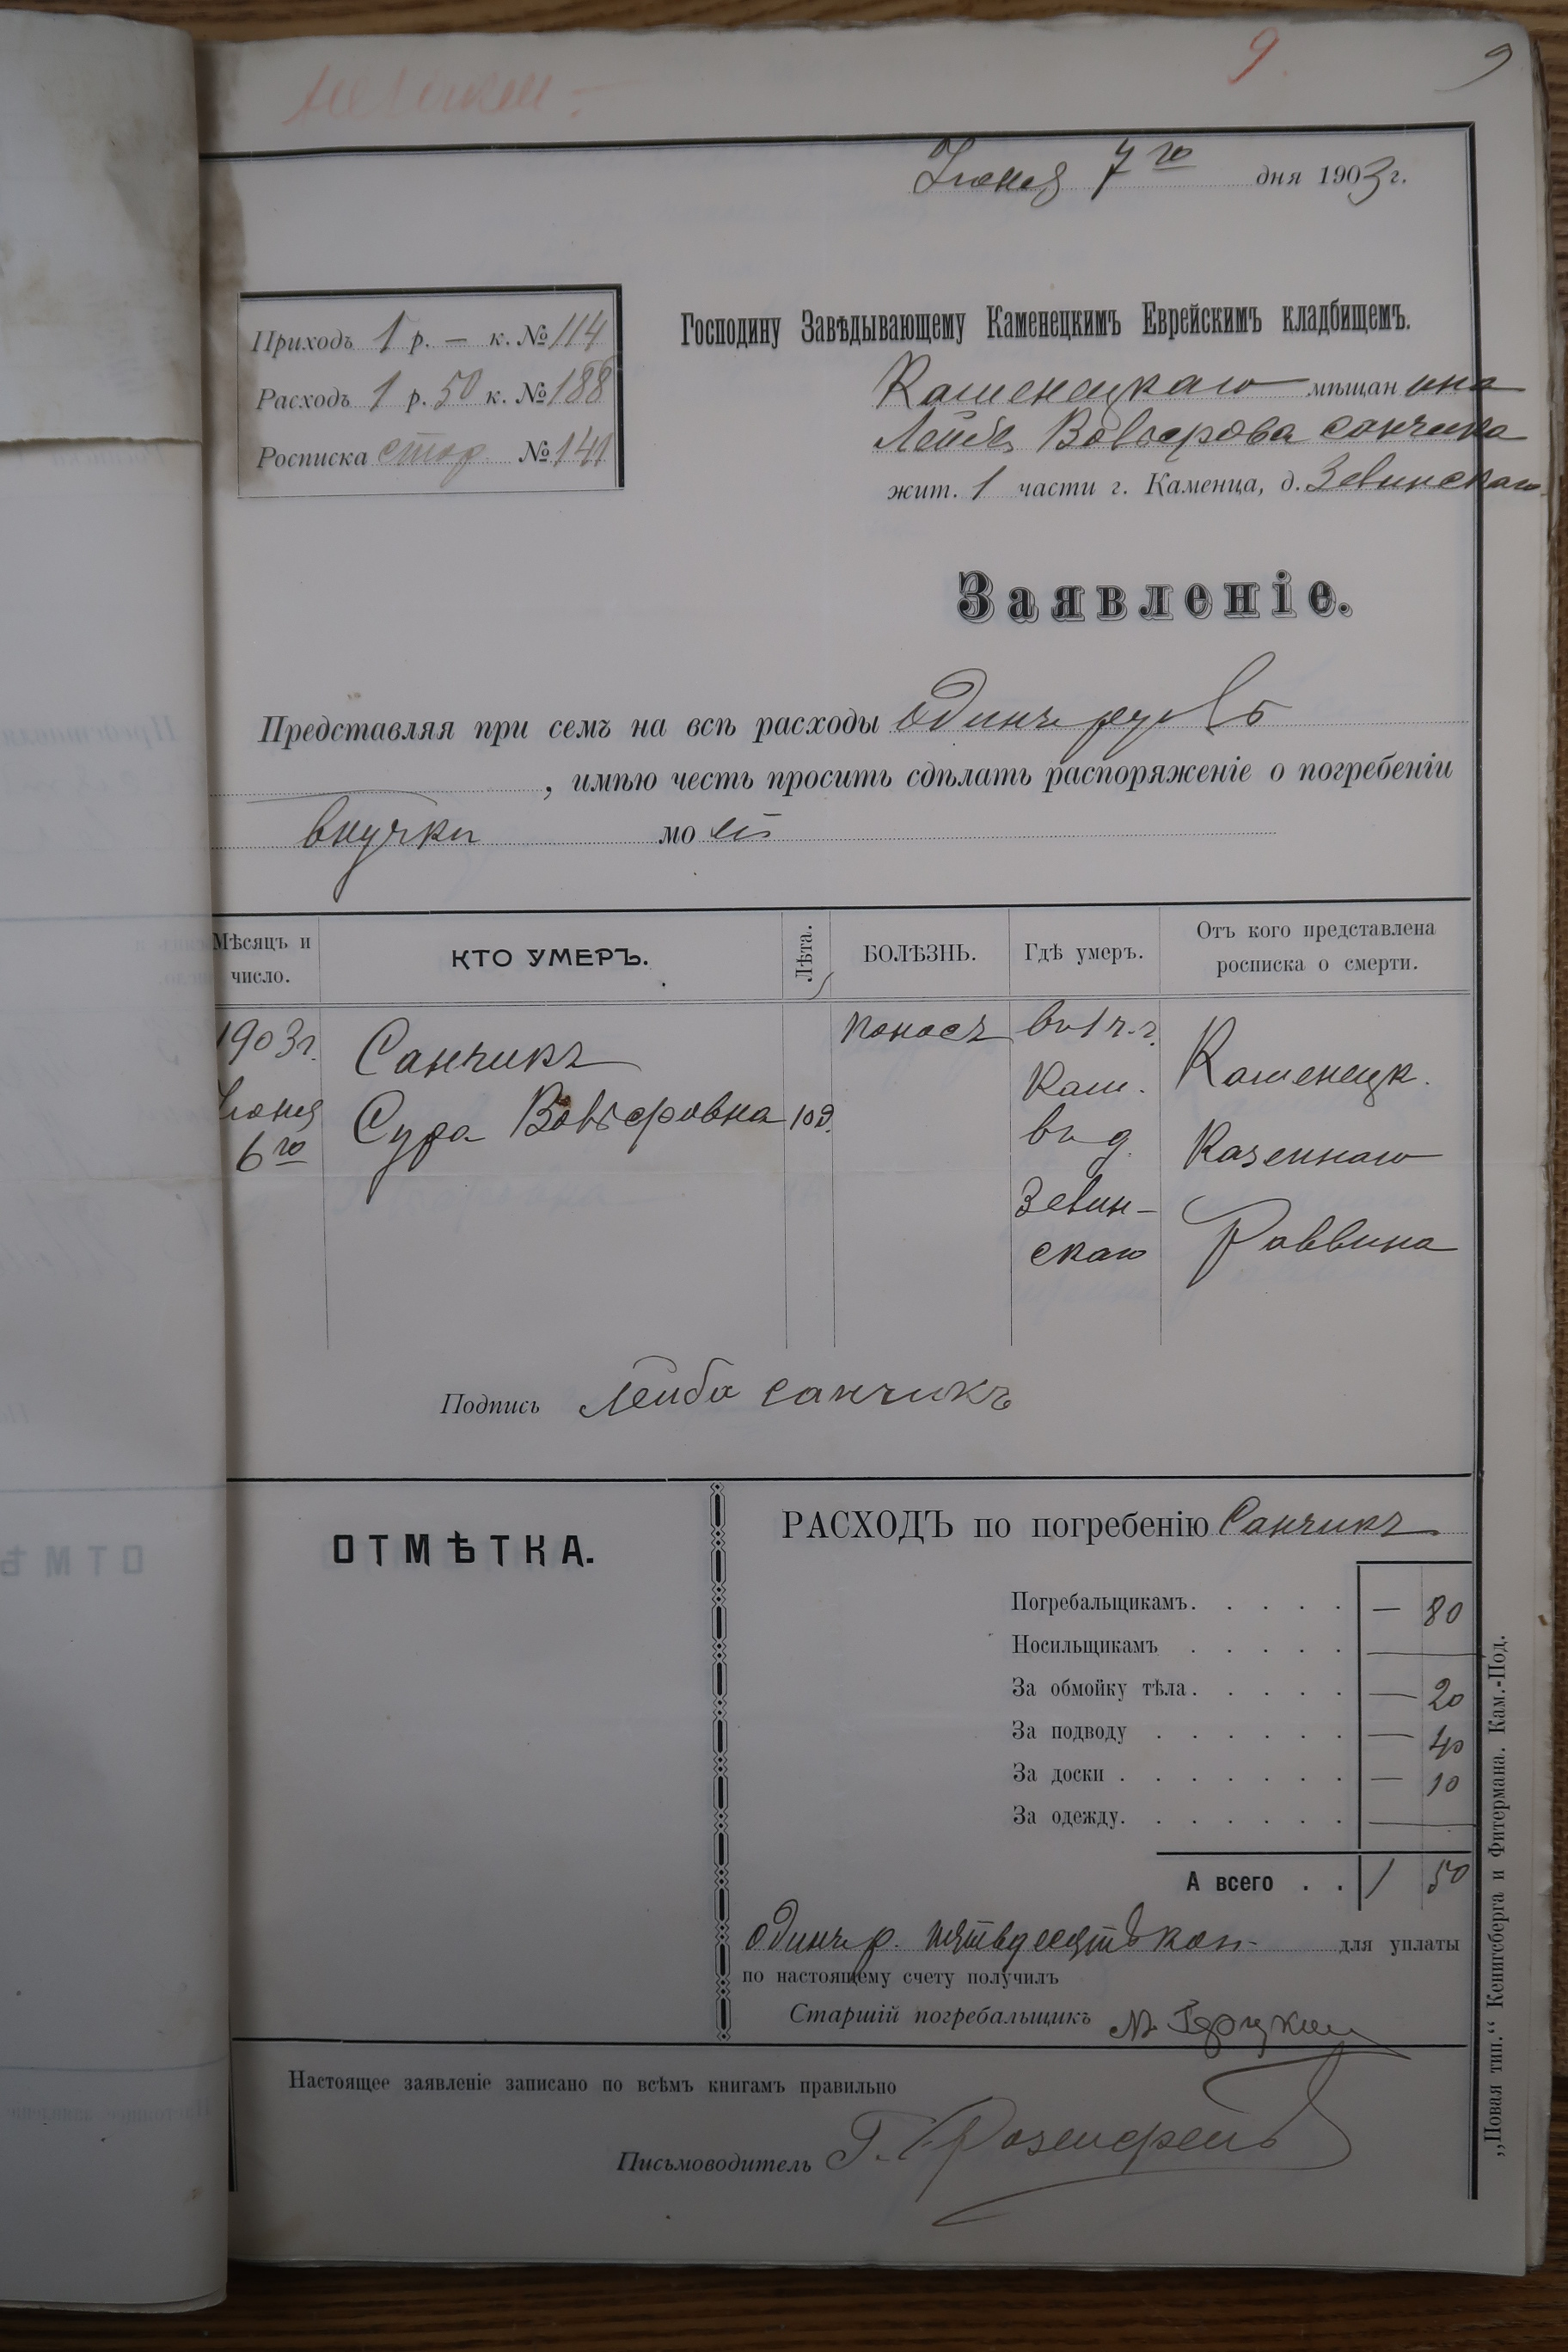 9.
9
Іюня 7го дня 1903 г.
Приходъ 1 р. — к. № 114
Расходъ 1 р. 50 к. № 188
Росписка стор № 141
Господину Завѣдывающему Каменецкимъ Еврейскимъ кладбищемъ.
Каменецкаго мѣщанина
Лейбы Вольфова Санчика
жит. 1 части г. Каменца, д. Зевинскаго
Заявленіе.
Представляя при семъ на всѣ расходы одинъ рубль
, имѣю честь просить сдѣлать распоряженіе о погребеніи
внучки моей
Мѣсяцъ и число. КТО УМЕРЪ. Лѣта. БОЛѢЗНЬ. Гдѣ умеръ. Отъ кого представлена росписка о смерти.
1903 г. Санчикъ поносъ въ 1 ч. г. Каменецк.
Іюня Сура Вольфовна Кам. Казеннаго
6го въ д. Раввина
Зевин-
скаго
Подпись Лейба Санчикъ
ОТМѢТКА.
РАСХОДЪ по погребенію Санчикъ
Погребальщикамъ. . . . . — 80
Носильщикамъ . . . . . —
За обмойку тѣла. . . . . — 20
За подводу . . . . . . — 40
За доски . . . . . . . — 10
За одежду. . . . . . . —
А всего . . 1 50
одинъ р. пятьдесятъ коп. для уплаты
по настоящему счету получилъ
Старшій погребальщикъ М.
Настоящее заявленіе записано по всѣмъ книгамъ правильно
Письмоводитель Г. Розенфельд
„Новая тип.“ Кенигсберга и Фитермана. Кам.-Под.